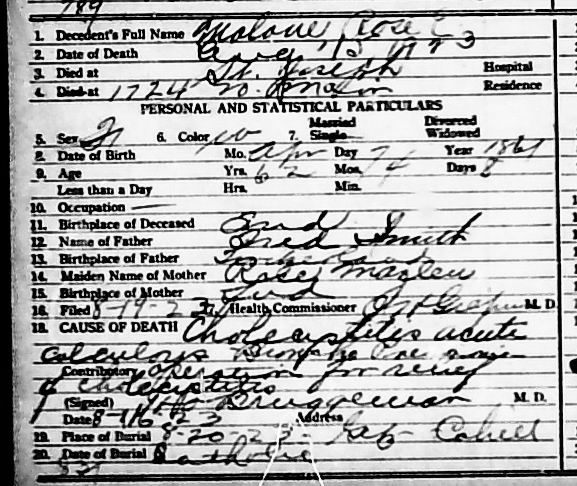 789
1. Decedent's Full Name Malone Rose E
2. Date of Death Aug 15 1923
3. Died at St. Joseph Hospital
4. Died at 1724 So. Residence
PERSONAL AND STATISTICAL PARTICULARS
Married Divorced
5. Sex F 6. Color W 7. Single Widowed
8. Date of Birth Mo. Apr Day 7 Year 1861
9. Age Yrs. 62 Mos. 4 Days 8
Less than a Day Hrs. Min.
10. Occupation —
11. Birthplace of Deceased Ind
12. Name of Father Fred Smith
13. Birthplace of Father
14. Maiden Name of Mother Rose
15. Birthplace of Mother Ind
16. Filed 8-19-23 Health Commissioner M. D.
18. CAUSE OF DEATH Cholecystitis acute
calculous
Contributory operation for relief
of cholecystitis
(Signed) Bruggeman M. D.
Date 8-16-23 Address
19. Place of Burial 8-20-23 Cahill
20. Date of Burial Catholic